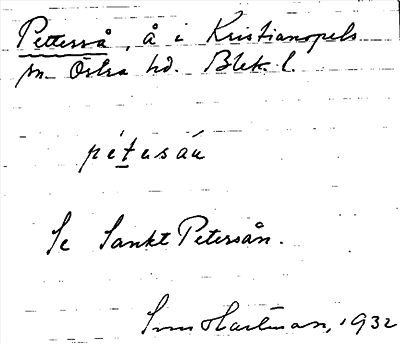 Petterså, å i Kristianopels
sn. Östra hd. Blek. l.
pétusáu
Se Sankt Petersån.
Hartman, 1932